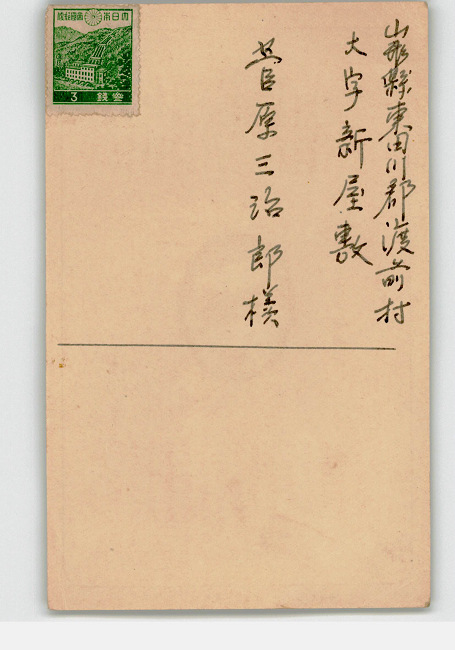 山形縣東田川郡渡前村
大字新屋敷
菅原三治郎様
大日本帝國郵便
3 錢 参